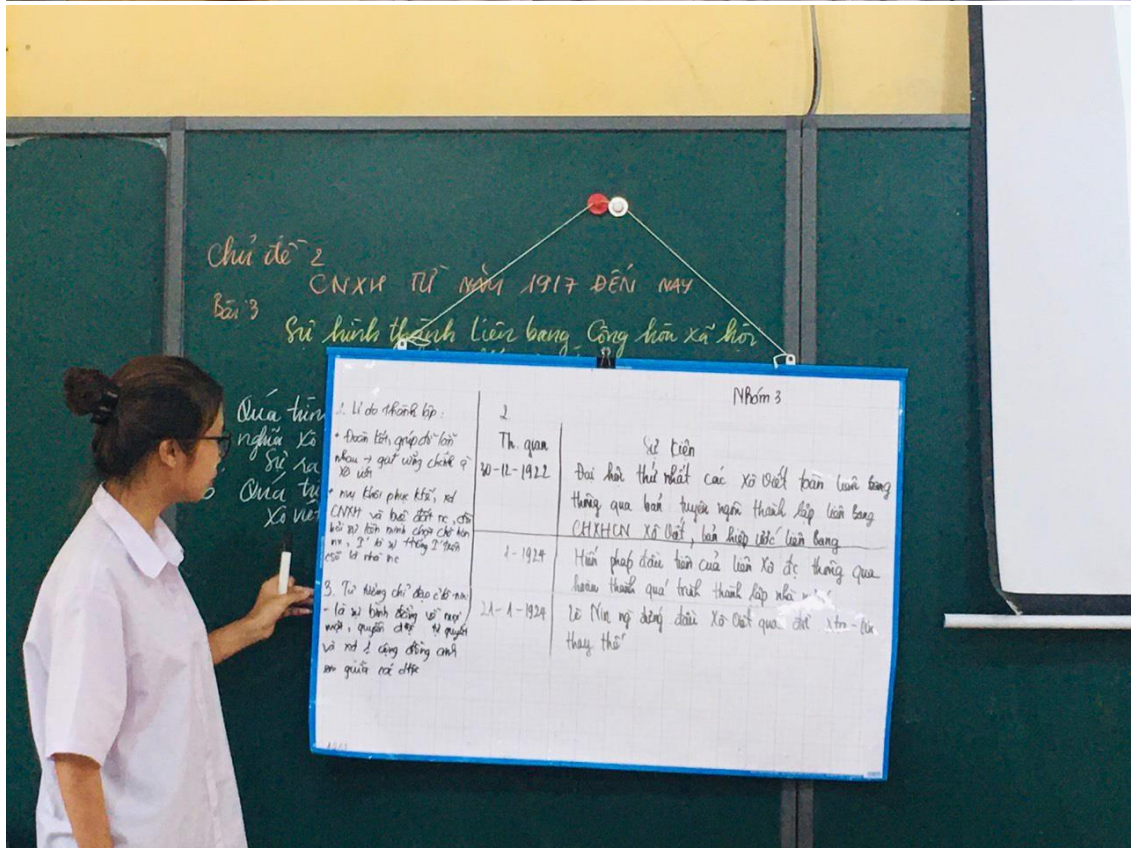 Chủ đề 2
CNXH TỪ NĂM 1917 ĐẾN NAY
Bài 3
Sự hình thành Liên bang Cộng hòa xã hội
Quá trìn
nghĩa Xô
Sự ra
Quá tr
Xô viết
Nhóm 3
1. Lí do thành lập:
• Đoàn kết, giúp đỡ lẫn
nhau → giữ vững chính q
Xô viết
CNXH và bvệ đất nc, đòi
csở là nhà nc
3. Tư tưởng chỉ đạo
- là sự bình đẳng về mọi
mặt, quyền dtộc tự quyết
và xd 1 cộng đồng anh
em giữa các dtộc
2
Th. gian
Sự kiện
30-12-1922
Đại hội thứ nhất các Xô Viết toàn liên bang
thông qua bản tuyên ngôn thành lập liên bang
CHXHCN Xô Viết, bản hiệp ước liên bang
1-1924
Hiến pháp đầu tiên của liên Xô đc thông qua
hoàn thành quá trình thành lập nhà
21-1-1924
Lê Nin ng đứng đầu Xô Viết qua đời
thay thế